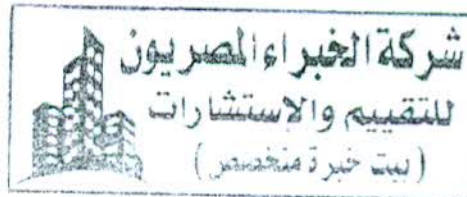 شركة الخبراء المصريون
للتقييم والإستشارات
(بيت خبرة متخصص)